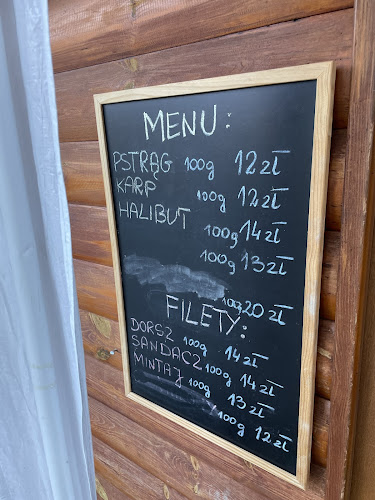 MENU:
PSTRĄG 100g 12 zł
KARP 100g 12 zł
HALIBUT 100g 14 zł
100g 13 zł
100g 20 zł
FILETY:
DORSZ 100g 14 zł
SANDACZ 100g 14 zł
MINTAJ 100g 13 zł
100g 12 zł